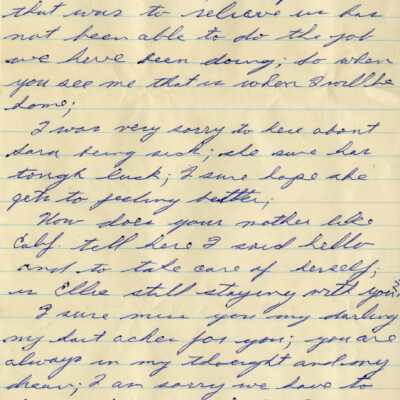 that was to relieve us has
not been able to do the job
we have been doing; so when
you see me that is when I will be
home;
I was very sorry to here about
Sara being sick; she sure has
tough luck; I sure hope she
gets to feeling better;
How does your mother like
Calif. tell here I said hello
and to take care of herself;
is Ellis still staying with you;
I sure miss you my darling
my hart aches for you; you are
always in my thought and my
dream; I am sorry we have to